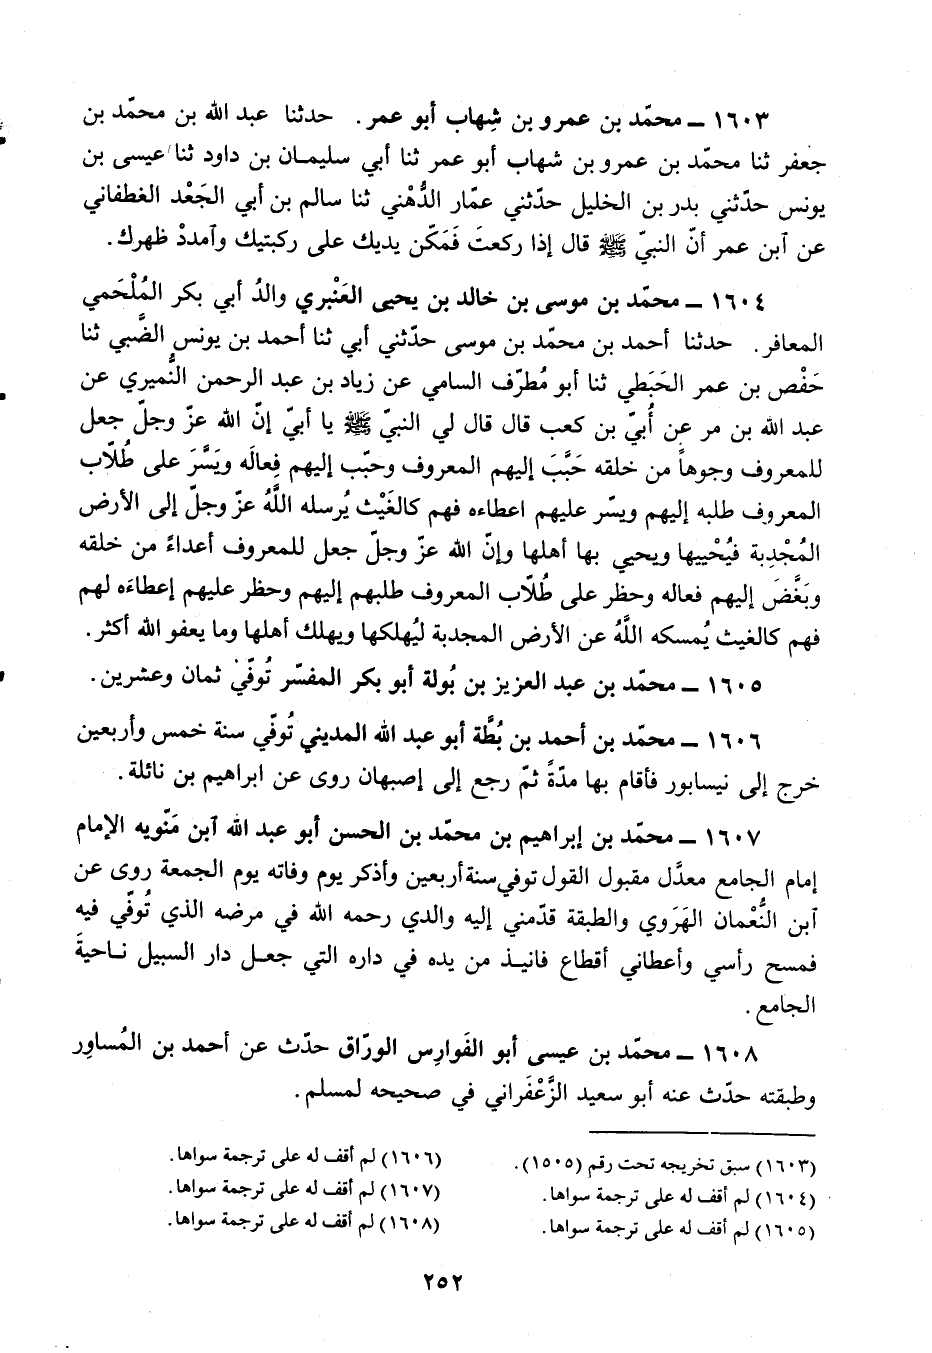 ١٦٠٣ ــ محمّد بن عمرو بن شِهاب أبو عمر. حدثنا عبد الله بن محمّد بن
جعفر ثنا محمّد بن عمرو بن شهاب أبو عمر ثنا أبي سليمـان بن داود ثنا عيسى بن
يونس حدّثني بدر بن الخليل حدّثني عمّار الدُّهْني ثنا سالم بن أبي الجَعْد الغطفاني
عن آبن عمر أنّ النبيّ ﷺ قال إذا ركعتَ فَمَكّن يديك على ركبتيك وآمددْ ظهرك.
١٦٠٤ ــ محمّد بن موسى بن خالد بن يحيى العَنْبري والدُ أبي بكر المُلْحَمي
المعافر. حدثنا أحمد بن محمّد بن موسى حدّثني أبي ثنا أحمد بن يونس الضَّبي ثنا
حَفْص بن عمر الحَبَطي ثنا أبو مُطرّف السامي عن زياد بن عبد الرحمن النُّميري عن
عبد الله بن مر عن أُبيّ بن كعب قال قال لي النبيّ ﷺ يا أبيّ إنّ الله عزّ وجلّ جعل
للمعروف وجوهاً من خلقه حَبَّبَ إليهم المعروف وحبّب إليهم فِعالَه ويَسَّرَ على طُلّاب
المعروف طلبه إليهم ويسّر عليهم اعطاءه فهم كالغَيْث يُرسله اللَّهُ عزّ وجلّ إلى الأرض
المُجْدِبة فيُحْييها ويحيي بها أهلها وإنّ الله عزّ وجلّ جعل للمعروف أعداءً من خلقه
وبَغَّضَ إليهم فعاله وحظر على طُلّاب المعروف طلبهم إليهم وحظر عليهم إعطاءه لهم
فهم كالغيث يُمسكه اللَّهُ عن الأرض المجدبة ليُهلكها ويهلك أهلها وما يعفو الله أكثر.
١٦٠٥ ــ محمّد بن عبد العزيز بن بُولة أبو بكر المفسّر تُوفّيَ ثمان وعشرين.
١٦٠٦ ــ محمّد بن أحمد بن بُطَّة أبو عبد الله المديني تُوفّي سنة خمس وأربعين
خرج إلى نيسابور فأقام بها مدّةً ثمّ رجع إلى إصبهان روى عن ابراهيم بن نائلة.
١٦٠٧ ــ محمّد بن إبراهيم بن محمّد بن الحسن أبو عبد الله آبن مَتّويه الإمام
إمام الجامع معدَّل مقبول القول توفي سنة أربعين وأذكر يوم وفاته يوم الجمعة روى عن
آبن النُّعْمان الهَرَوي والطبقة قدّمني إليه والدي رحمه الله في مرضه الذي تُوفّي فيه
فمسح رأسي وأعطاني أقطاع فانيـذ من يده في داره التي جعـل دار السبيل نـاحيةَ
الجامع.
١٦٠٨ ــ محمّد بن عيسى أبو الفَوارِس الورّاق حدّث عن أحمد بن المُساوِر
وطبقته حدّث عنه أبو سعيد الزَّعْفَراني في صحيحه لمسلم.
(١٦٠٣) سبق تخريجه تحت رقم (١٥٠٥).
(١٦٠٤) لم أقف له على ترجمة سواها.
(١٦٠٥) لم أقف له على ترجمة سواها.
(١٦٠٦) لم أقف له على ترجمة سواها.
(١٦٠٧) لم أقف له على ترجمة سواها.
(١٦٠٨) لم أقف له على ترجمة سواها.
٢٥٢